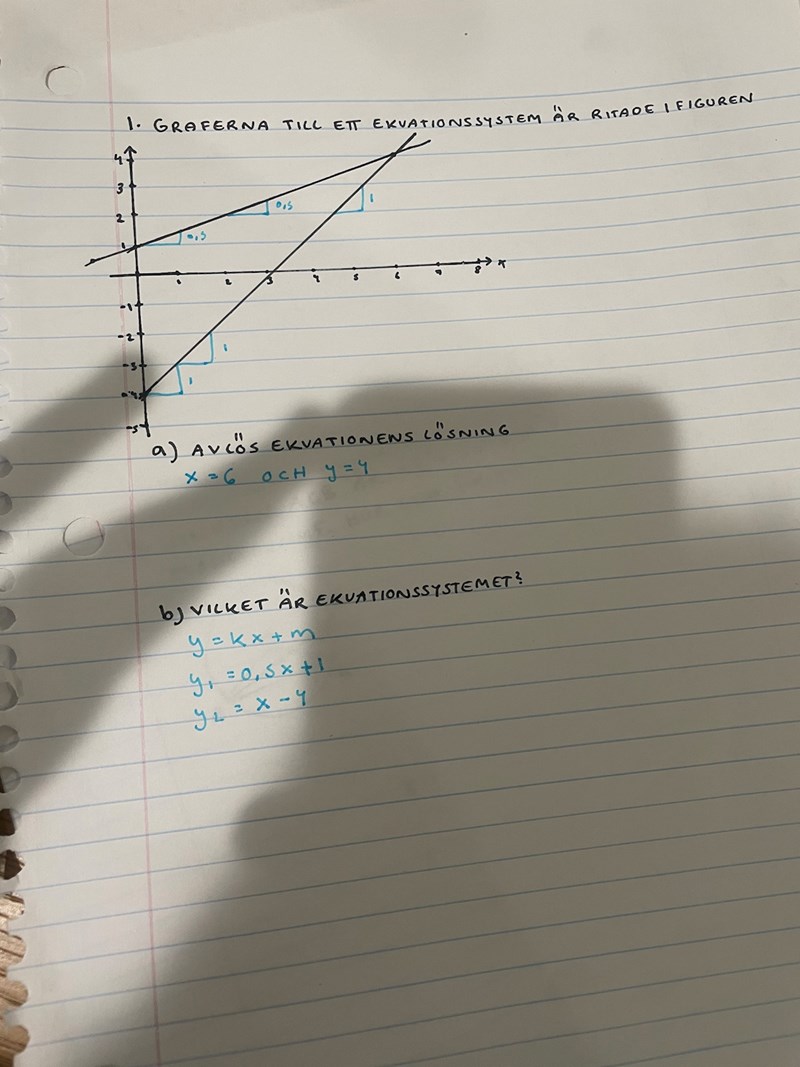 1. GRAFERNA TILL ETT EKVATIONSSYSTEM ÄR RITADE I FIGUREN
4
3
2
1
0,5
0,5
1
1 2 3 4 5 6 7 8 x
-1
-2
1
-3
1
-4
-5
a) AVLÖS EKVATIONENS LÖSNING
x = 6 OCH y = 4
b) VILKET ÄR EKVATIONSSYSTEMET?
y = kx + m
y₁ = 0,5x + 1
y₂ = x - 4